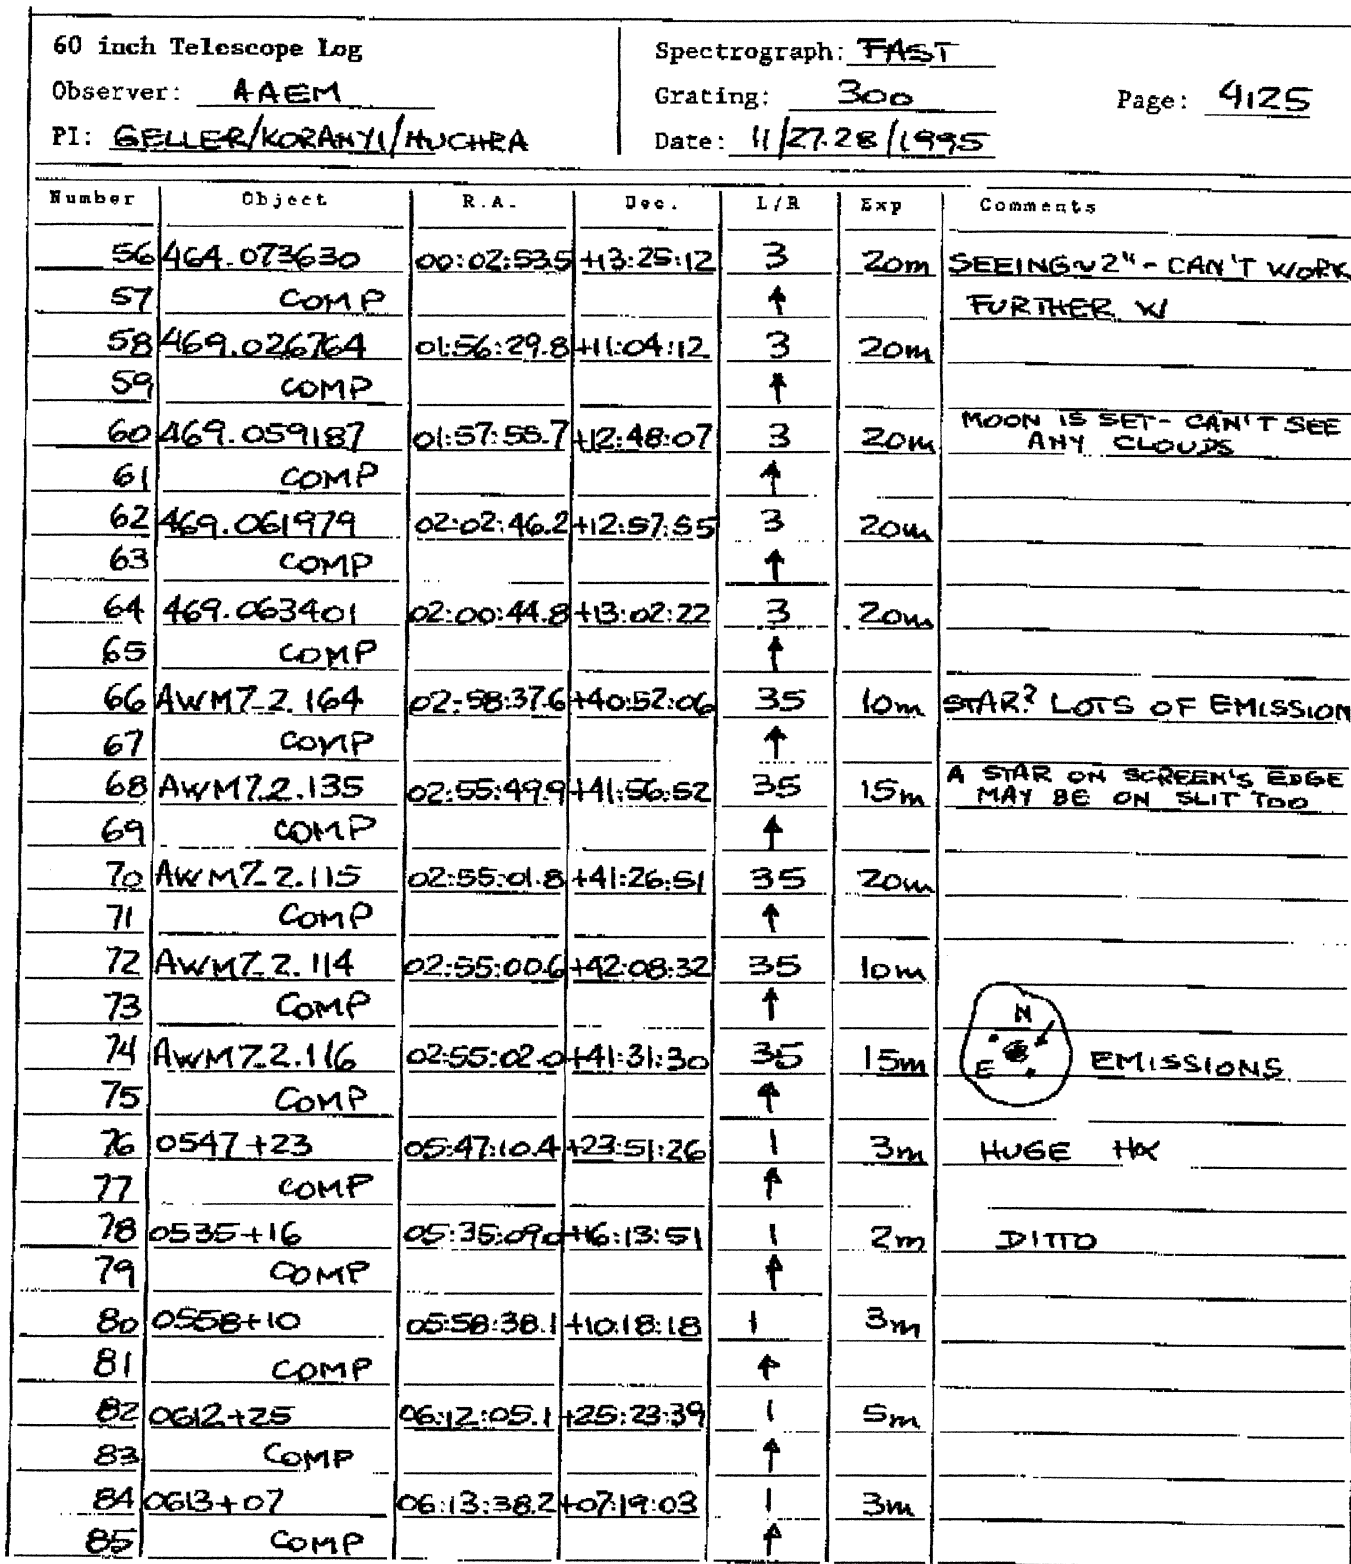 60 inch Telescope Log
Observer: AAEM
PI: GELLER/KORANYI/HUCHRA
Spectrograph: FAST
Grating: 300
Date: 11/27.28/1995
Page: 4125
Number Object R.A. Dec. L/R Exp Comments
56 464.073630 00:02:53.5 +13:25:12 3 20m SEEING ~ 2" - CAN'T WORK
57 COMP ↑ FURTHER W
58 469.026764 01:56:29.8 +11:04:12 3 20m
59 COMP ↑
60 469.059187 01:57:55.7 +12:48:07 3 20m MOON IS SET - CAN'T SEE
ANY CLOUDS
61 COMP ↑
62 469.061979 02:02:46.2 +12:57:55 3 20m
63 COMP ↑
64 469.063401 02:00:44.8 +13:02:22 3 20m
65 COMP ↑
66 AWM7_2.164 02:58:37.6 +40:52:06 35 10m STAR? LOTS OF EMISSION
67 COMP ↑
68 AWM7_2.135 02:55:49.9 +41:56:52 35 15m A STAR ON SCREEN'S EDGE
MAY BE ON SLIT TOO
69 COMP ↑
70 AWM7_2.115 02:55:01.8 +41:26:51 35 20m
71 COMP ↑
72 AWM7_2.114 02:55:00.6 +42:08:32 35 10m
73 COMP ↑
N
74 AWM7_2.116 02:55:02.0 +41:31:30 35 15m E EMISSIONS
75 COMP ↑
76 0547+23 05:47:10.4 +23:51:26 1 3m HUGE Hα
77 COMP ↑
78 0535+16 05:35:09.0 +16:13:51 1 2m DITTO
79 COMP ↑
80 0558+10 05:58:38.1 +10:18:18 1 3m
81 COMP ↑
82 0612+25 06:12:05.1 +25:23:39 1 5m
83 COMP ↑
84 0613+07 06:13:38.2 +07:19:03 1 3m
85 COMP ↑